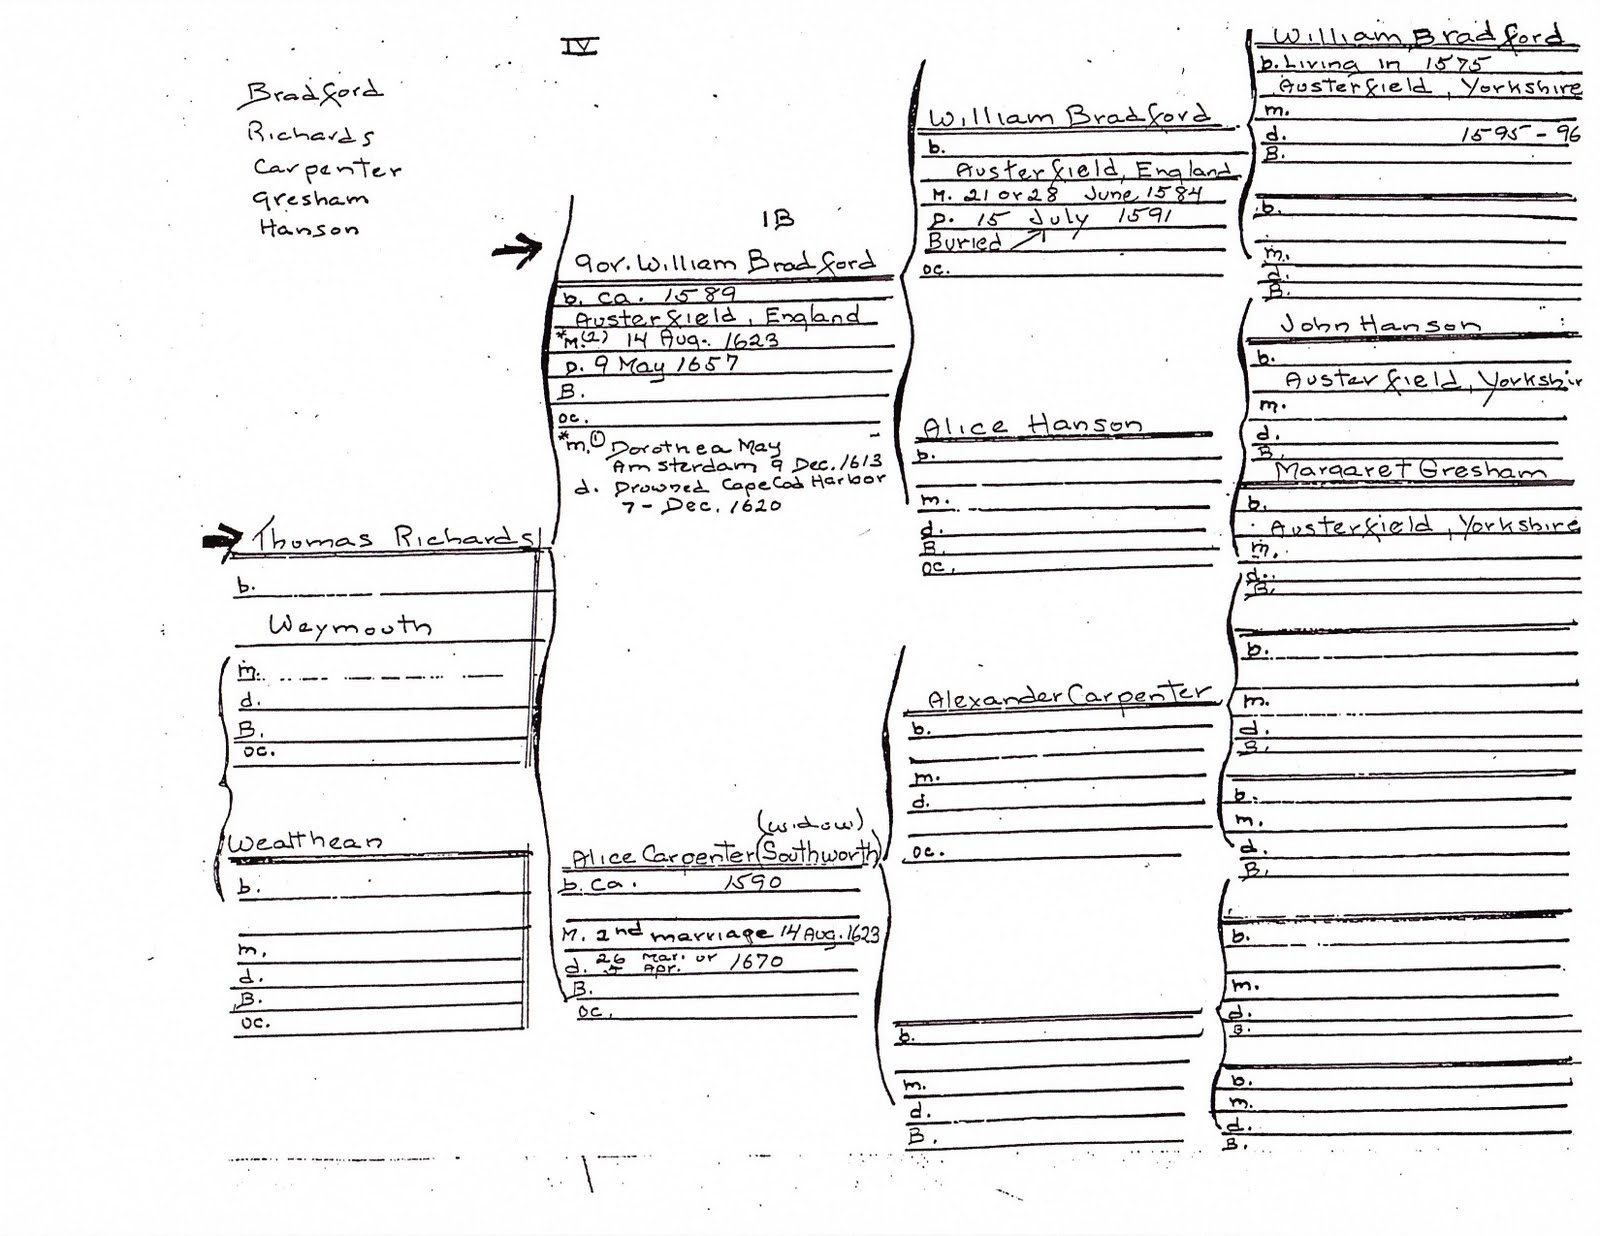 IV
Bradford
Richards
Carpenter
Gresham
Hanson
Thomas Richards
b.
Weymouth
m.
d.
B.
oc.
Wealthean
b.
m.
d.
B.
oc.
1B
Gov. William Bradford
b. ca. 1589
Austerfield, England
*M.(2) 14 Aug. 1623
D. 9 May 1657
B.
oc.
*m.① Dorothea May
Amsterdam 9 Dec. 1613
d. Drowned Cape Cod Harbor
7 - Dec. 1620
(widow)
Alice Carpenter (Southworth)
b. ca. 1590
M. 2nd marriage 14 Aug. 1623
d. 26 Mar. or Apr. 1670
B.
oc.
William Bradford
b.
Austerfield, England
M. 21 or 28 June, 1584
D. 15 July 1591
Buried
oc.
Alice Hanson
b.
m.
d.
B.
oc.
Alexander Carpenter
b.
m.
d.
oc.
b.
m.
d.
B.
William Bradford
b. Living in 1575
Austerfield, Yorkshire
m.
d. 1595 - 96
B.
b.
m.
d.
B.
John Hanson
b.
Austerfield, Yorkshir
m.
d.
B.
Margaret Gresham
b.
Austerfield, Yorkshire
m.
d.
B.
b.
m.
d.
B.
b.
m.
d.
B.
b.
m.
d.
B.
b.
m.
d.
B.